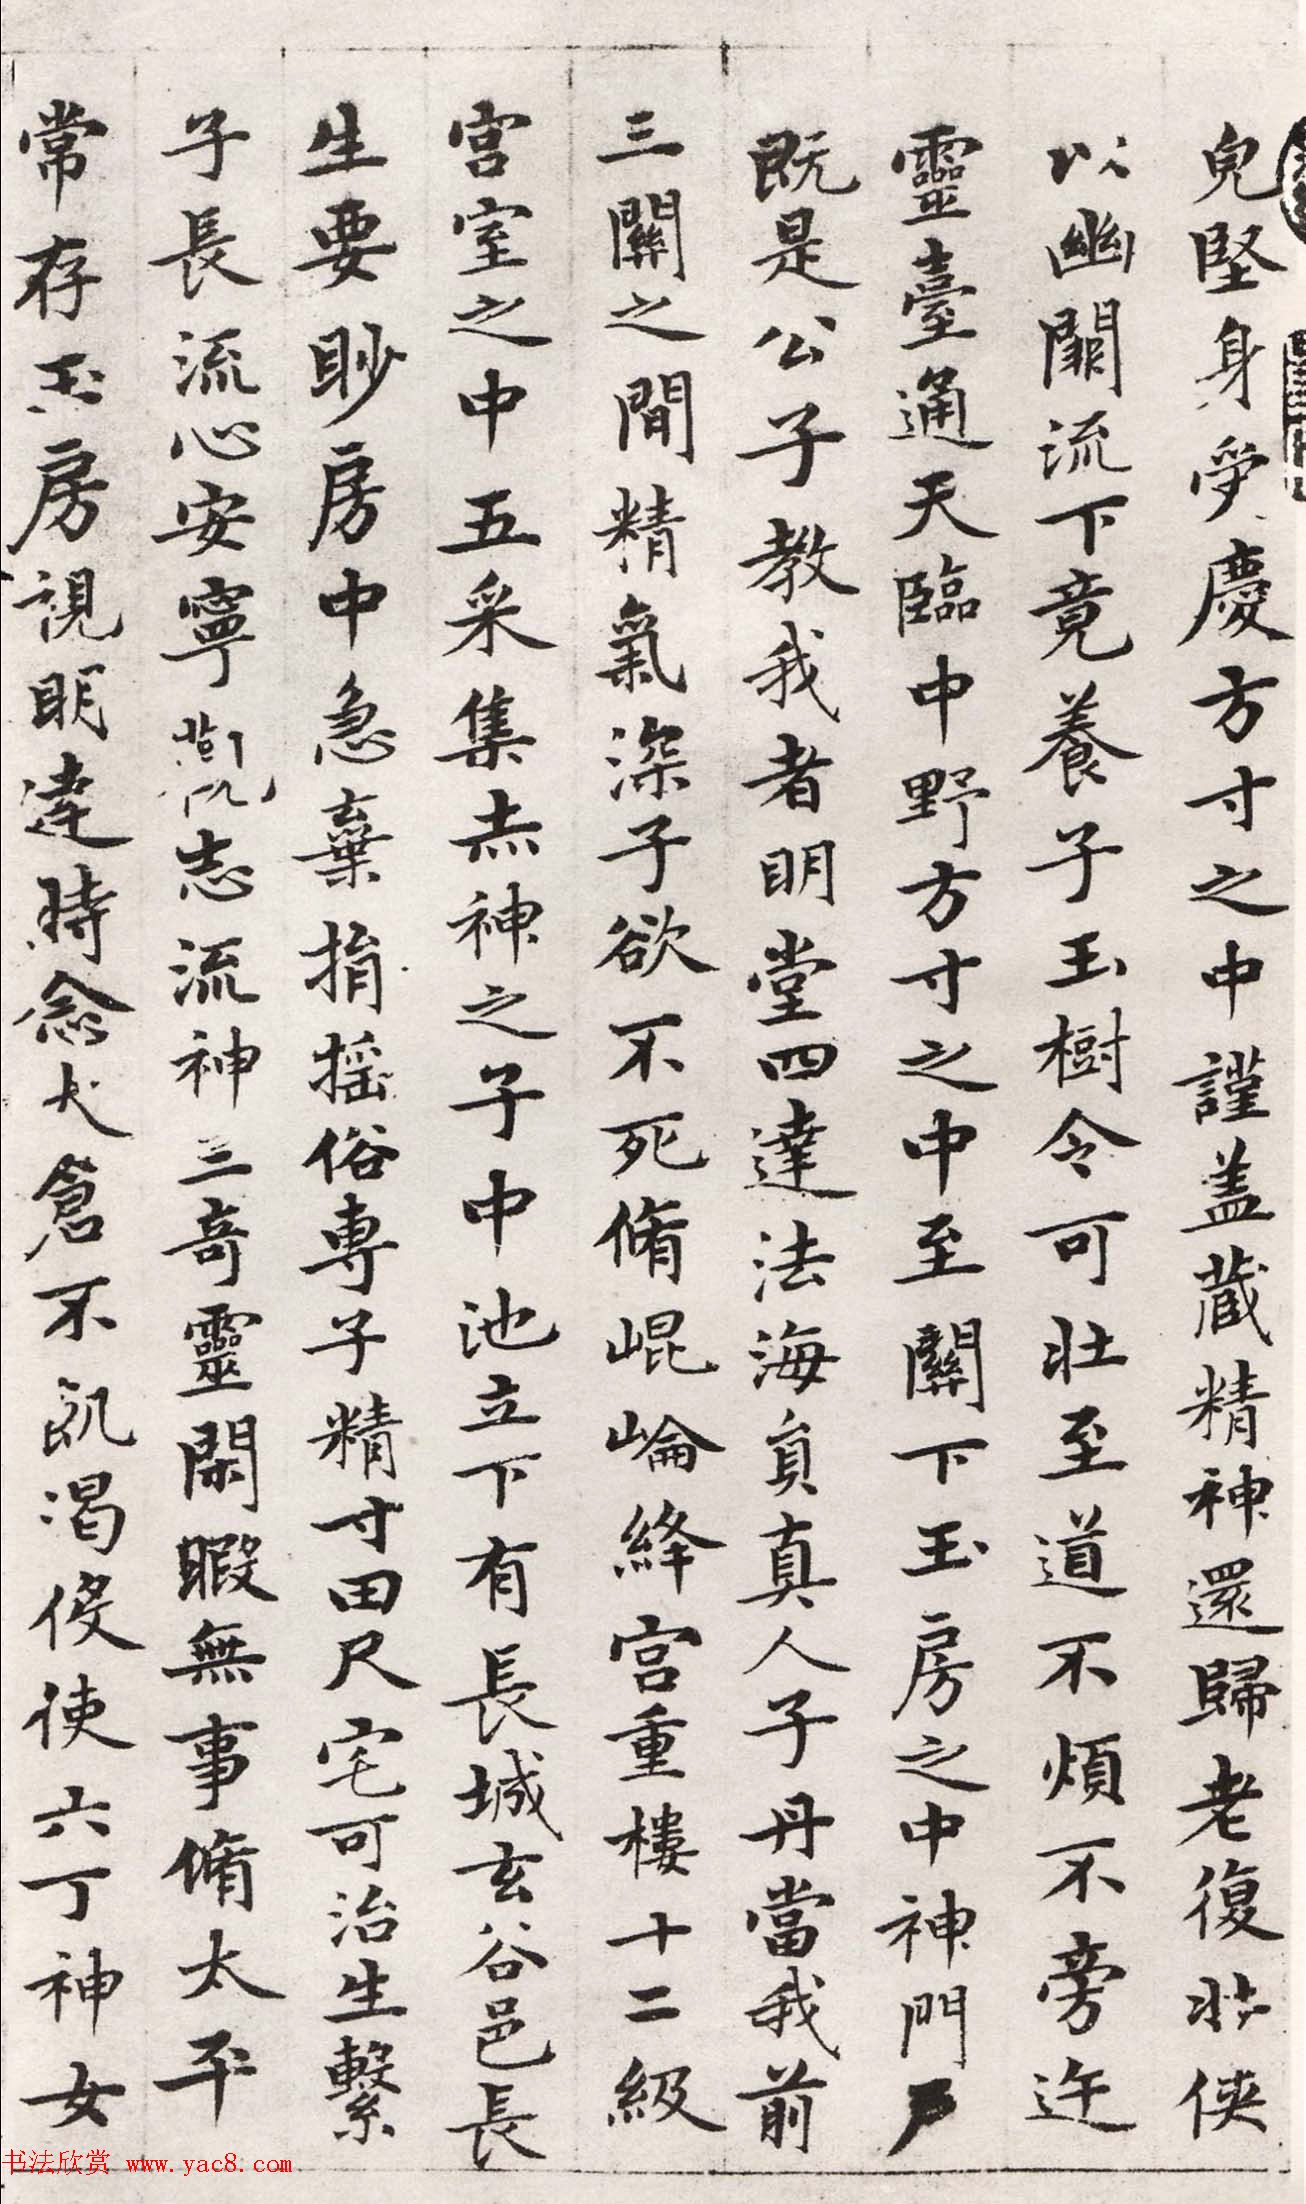 皃堅身受慶方寸之中謹盖藏精神還歸老復壯俠
以幽闕流下竟養子玉樹令可壯至道不煩不旁迕
靈臺通天臨中野方寸之中至關下玉房之中神門戶
既是公子教我者明堂四達法海員真人子丹當我前
三關之間精氣深子欲不死脩崐崘絳宮重樓十二級
宮室之中五采集赤神之子中池立下有長城玄谷邑長
生要眇房中急棄捐搖俗專子精寸田尺宅可治生繫
子長流心安寧志流神三奇靈閑暇無事脩太平
常存玉房視明達時念大倉不飢渴伇使六丁神女
书法欣赏 www.yac8.com